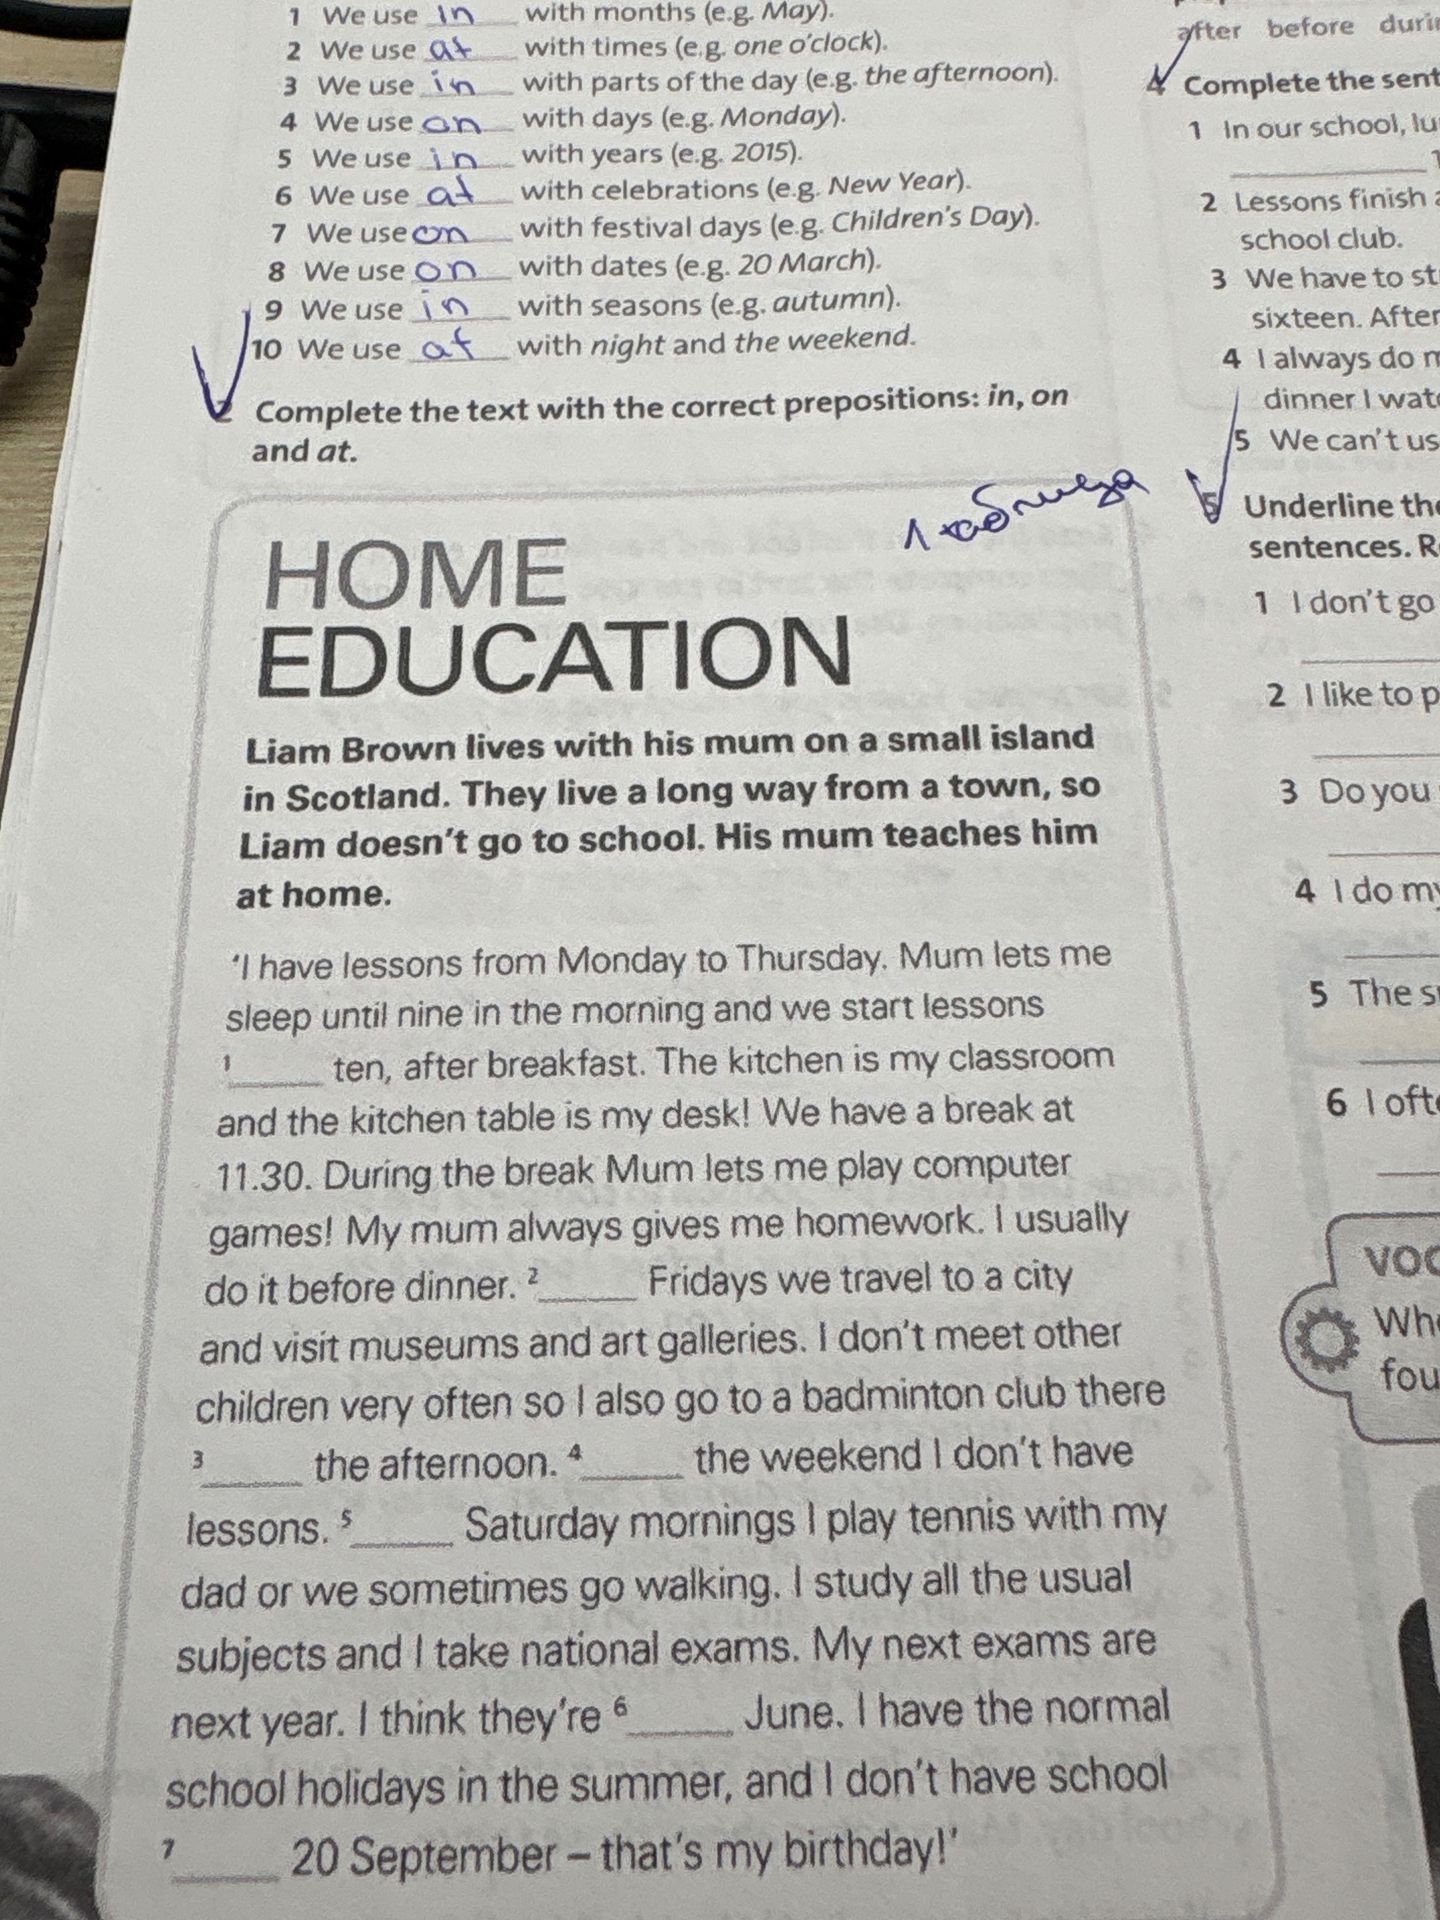 1 We use in with months (e.g. May).
2 We use at with times (e.g. one o'clock).
3 We use in with parts of the day (e.g. the afternoon).
4 We use on with days (e.g. Monday).
5 We use in with years (e.g. 2015).
6 We use at with celebrations (e.g. New Year).
7 We use on with festival days (e.g. Children's Day).
8 We use on with dates (e.g. 20 March).
9 We use in with seasons (e.g. autumn).
10 We use at with night and the weekend.
2 Complete the text with the correct prepositions: in, on
and at.
HOME
EDUCATION
Liam Brown lives with his mum on a small island
in Scotland. They live a long way from a town, so
Liam doesn't go to school. His mum teaches him
at home.
'I have lessons from Monday to Thursday. Mum lets me
sleep until nine in the morning and we start lessons
1 ____ ten, after breakfast. The kitchen is my classroom
and the kitchen table is my desk! We have a break at
11.30. During the break Mum lets me play computer
games! My mum always gives me homework. I usually
do it before dinner. 2 ____ Fridays we travel to a city
and visit museums and art galleries. I don't meet other
children very often so I also go to a badminton club there
3 ____ the afternoon. 4 ____ the weekend I don't have
lessons. 5 ____ Saturday mornings I play tennis with my
dad or we sometimes go walking. I study all the usual
subjects and I take national exams. My next exams are
next year. I think they're 6 ____ June. I have the normal
school holidays in the summer, and I don't have school
7 ____ 20 September – that's my birthday!'
after before
4 Complete the
1 In our school,
2 Lessons finish
school club.
3 We have to
sixteen. After
4 I always do
dinner I
5 We can't
5 Underline
sentences.
1 I don't go
2 I like to
3 Do you
4 I do
5 The
6 I